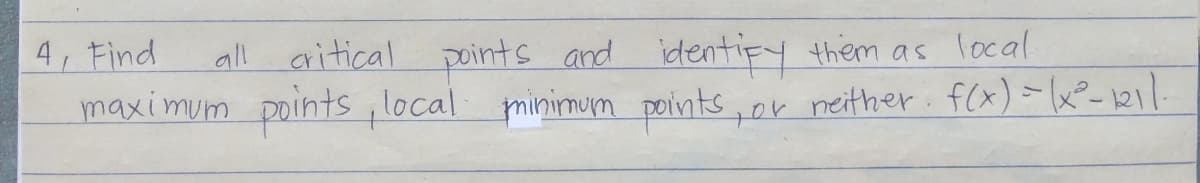 4, Find all critical points and identify them as local
maximum points, local minimum points, or neither. f(x) = |x² - 121|.